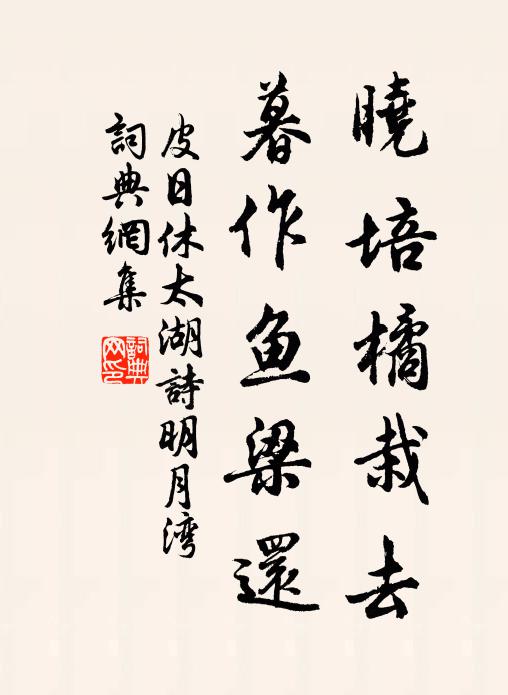 曉培橘栽去
暮作鱼梁還
皮日休太湖詩明月湾
詞典網集
詞典
网印